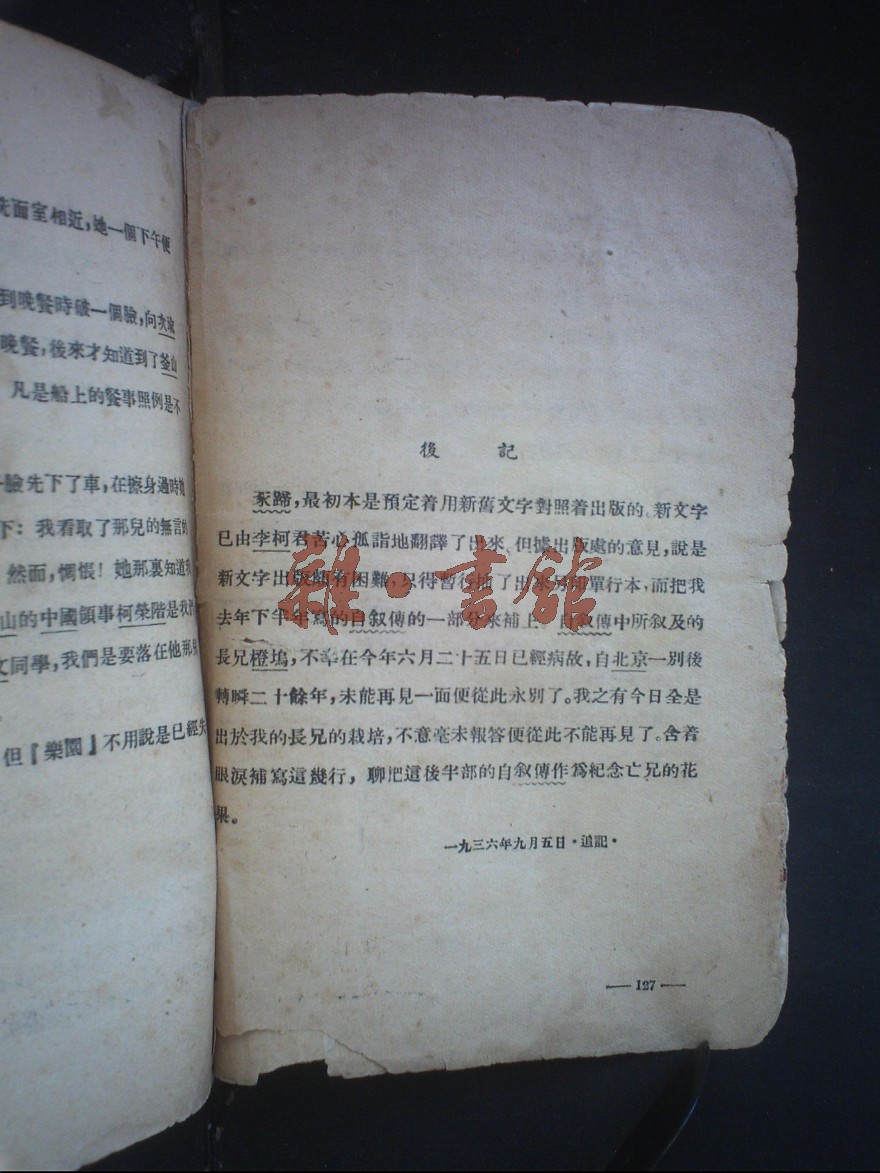 洗面室相近，她一個下午便
到晚餐時破一個臉，向次
晚餐，後來才知道到了釜山
凡是船上的餐事照例是不
臉先下了車，在擦身過時她
下：我看取了那兒的無言的
然而，惆悵！她那裏知道我
山的中國領事柯榮階是我
同學，我們是要落在他那
但『樂園』不用說是已經失
後　記
豕蹄，最初本是預定着用新舊文字對照着出版的。新文字
已由李柯君苦心孤詣地翻譯了出來。但據出版處的意見，說是
新文字出版頗有困難，只得暫行地了出來另印單行本，而把我
去年下半年寫的自叙傳的一部分來補上。自叙傳中所叙及的
長兄橙塢，不幸在今年六月二十五日已經病故，自北京一別後
轉瞬二十餘年，未能再見一面便從此永別了。我之有今日全是
出於我的長兄的栽培，不意毫未報答便從此不能再見了。含着
眼淚補寫這幾行，聊把這後半部的自叙傳作爲紀念亡兄的花
果。
一九三六年九月五日·追記·
— 127 —
雜·書館